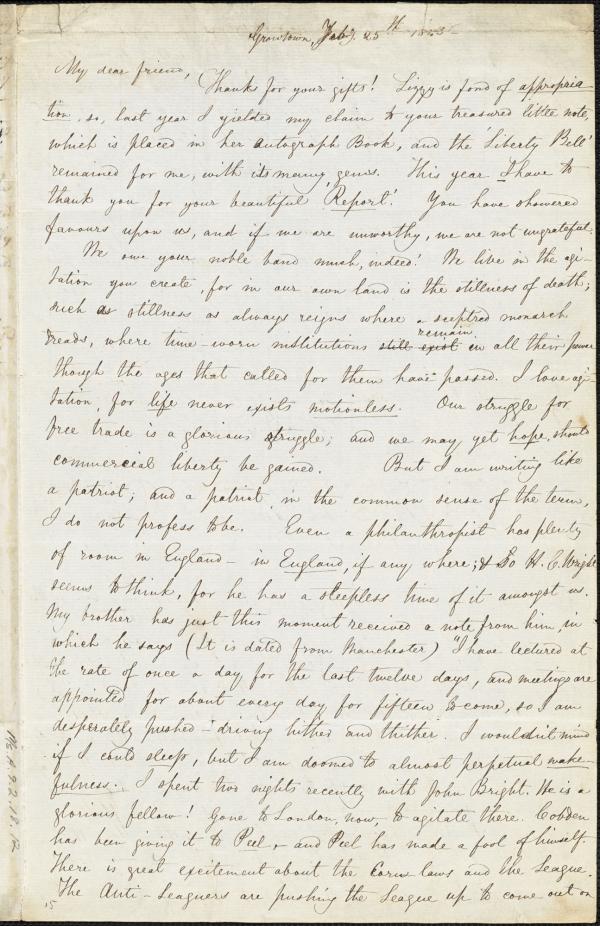 Growtown, Feby. 25th 1843
My dear friend,
Thanks for your gifts! Lizzy is fond of appropria
tion, so, last year I yielded my claim to your treasured little note,
which is placed in her autograph Book, and the 'Liberty Bell'
remained for me, with its many gems. This year I have to
thank you for your beautiful 'Report'. You have showered
favours upon us, and if we are unworthy, we are not ungrateful.
We owe your noble band much, indeed! We live in the agi-
tation you create, for in our own land is the stillness of death;
such a stillness as always reigns where a sceptred monarch
remain
treads, where time-worn institutions still exist in all their power
though the ages that called for them have passed. I love agi-
tation, for life never exists motionless. Our struggle for
free trade is a glorious struggle; and we may yet hope, should
commercial liberty be gained. But I am writing like
a patriot; and a patriot, in the common sense of the term,
I do not profess to be. Even a philanthropist has plenty
of room in England - in England, if any where; & so H. C. Wright
seems to think, for he has a sleepless time of it amongst us.
My brother has just this moment received a note from him, in
which he says (It is dated from Manchester) "I have lectured at
the rate of once a day for the last twelve days, and meetings are
appointed for about every day for fifteen to come, so I am
desperately pushed - driving hither and thither. I wouldn't mind
if I could sleep, but I am doomed to almost perpetual wake-
fulness. I spent two nights recently with John Bright. He is a
glorious fellow! Gone to London, now, to agitate there. Cobden
has been giving it to Peel, - and Peel has made a fool of himself.
There is great excitement about the Corn laws and the League.
The Anti-Leaguers are pushing the League up to come out on
15
Ms. A. 9. 2. 18. 2